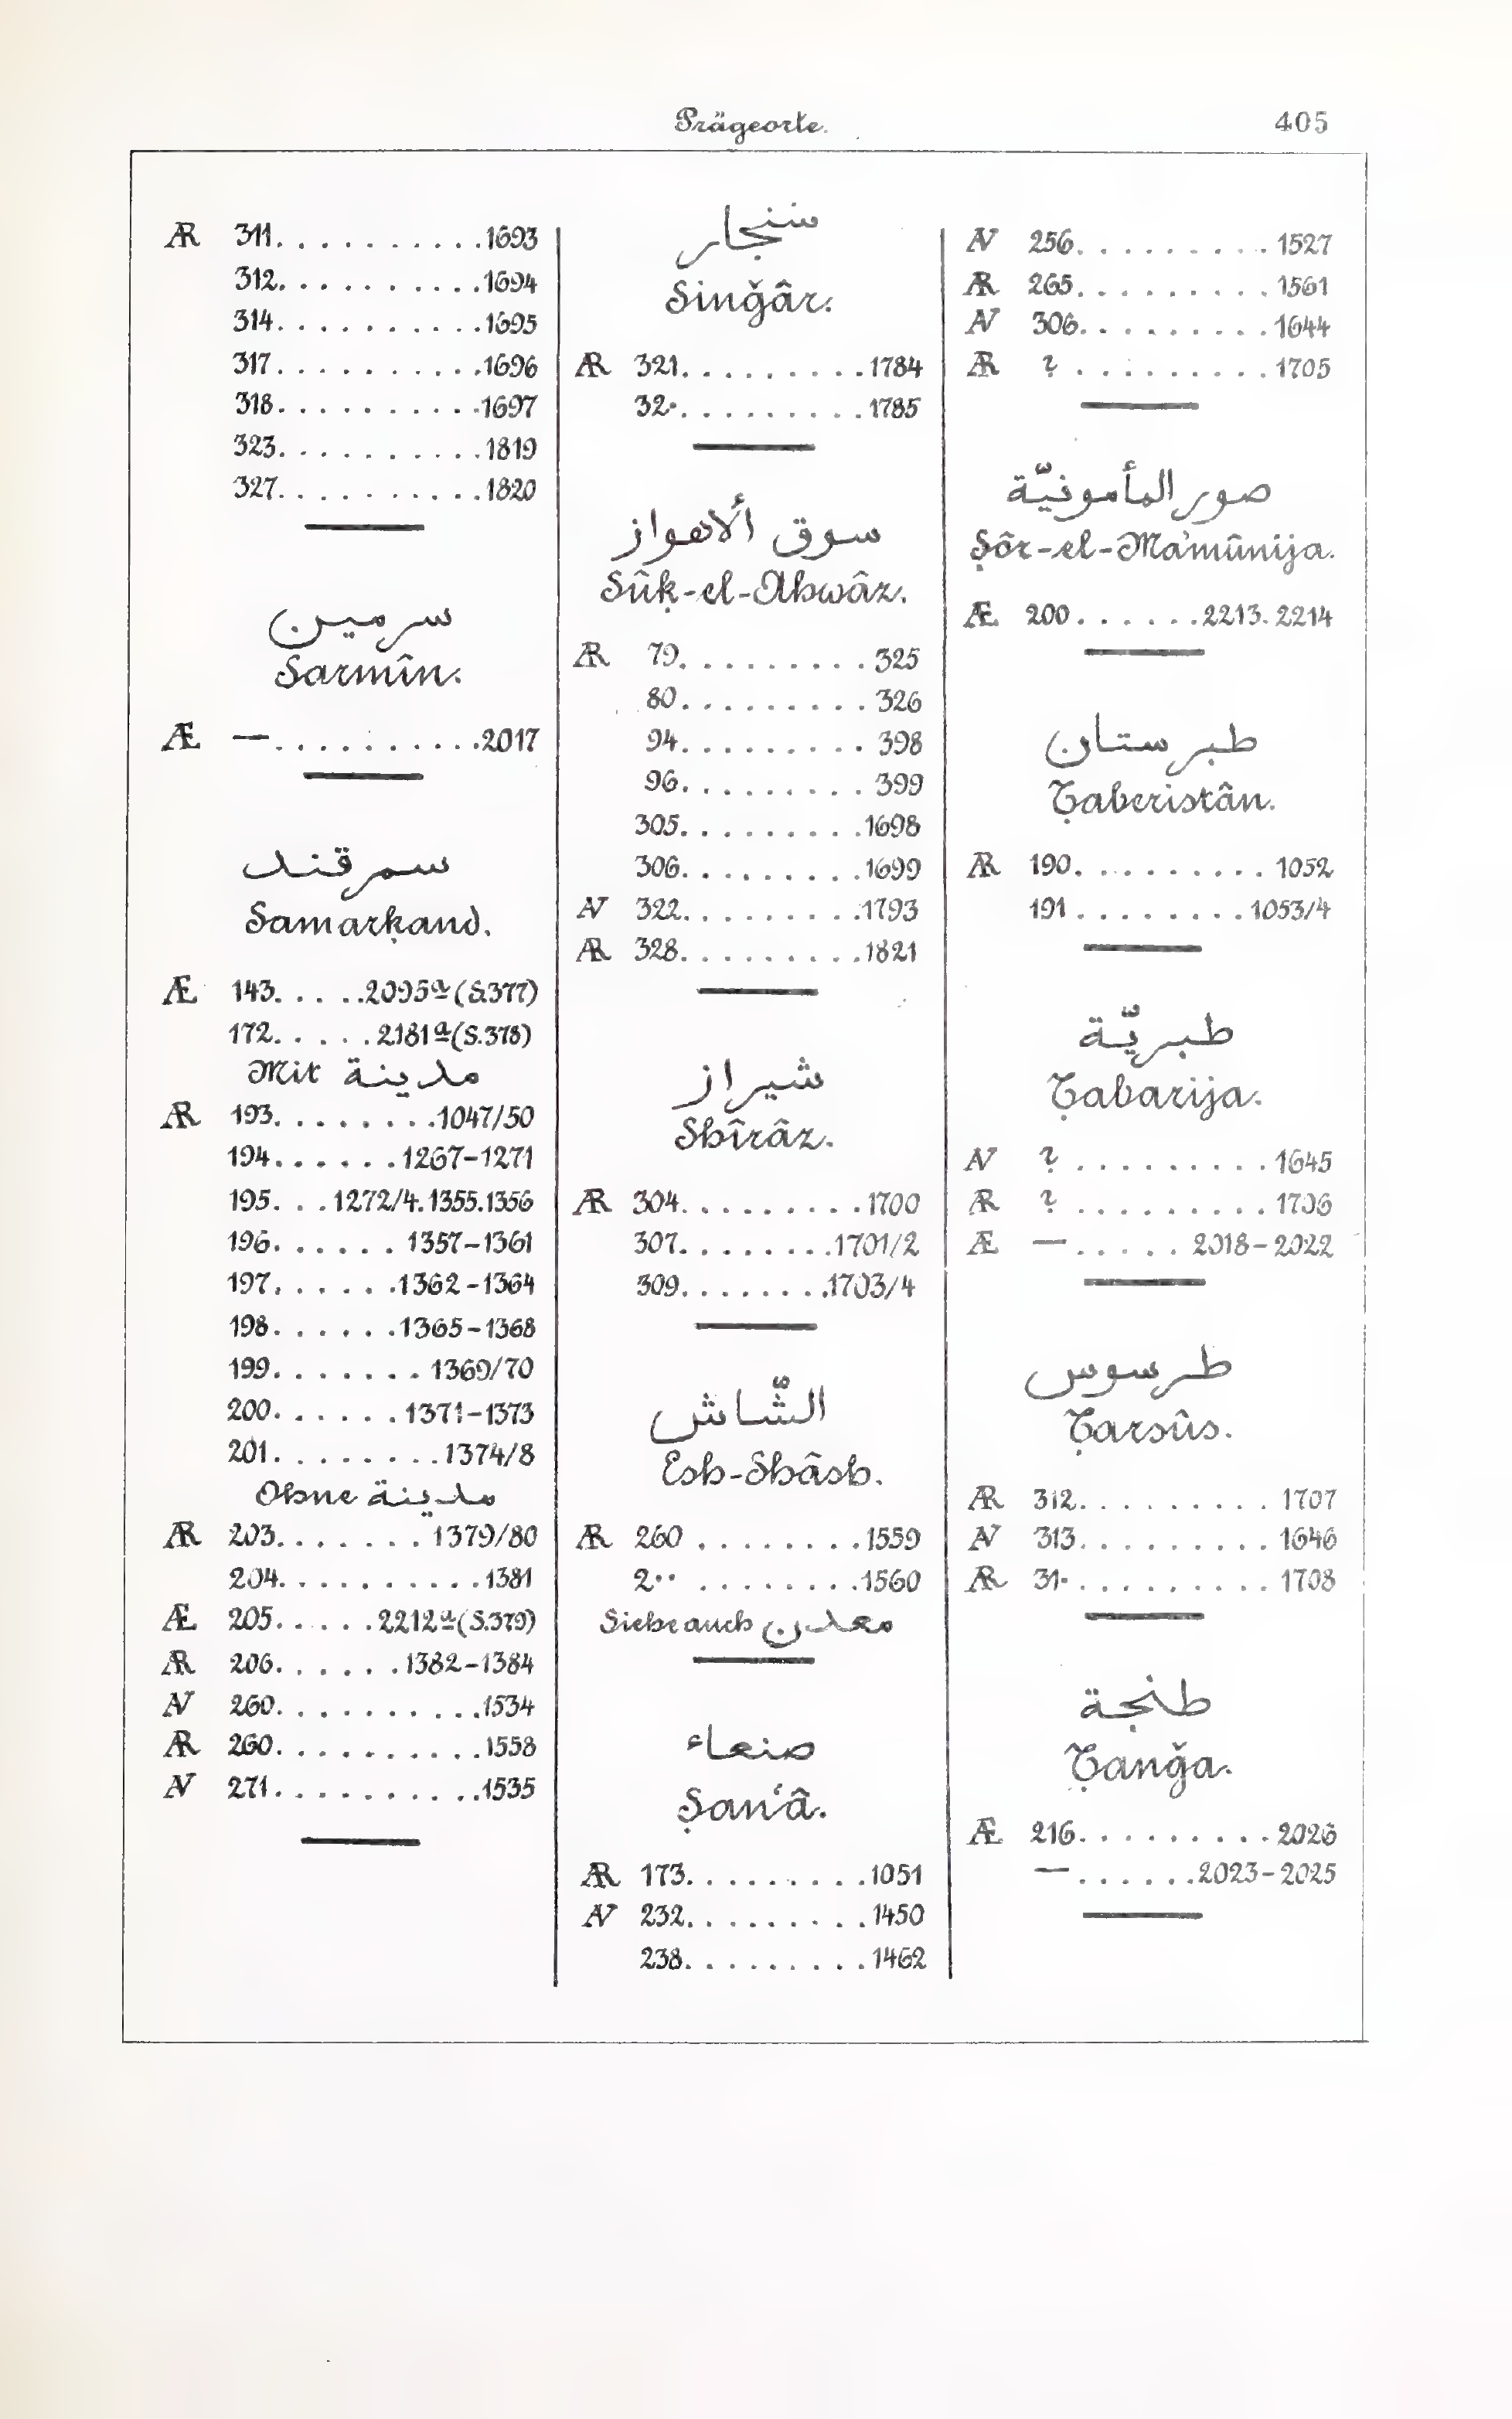 Prägeorte.
405
Æ 311 . . . . . . . . . . 1693
312 . . . . . . . . . . 1694
314 . . . . . . . . . . 1695
317 . . . . . . . . . . 1696
318 . . . . . . . . . . 1697
323 . . . . . . . . . . 1819
327 . . . . . . . . . . 1820
سرمين
Sarmîn.
Æ — . . . . . . . . . . 2017
سمرقند
Samarḳand.
Æ 143 . . . . . 2095ª (S.377)
172 . . . . . 2181ª (S.378)
Mit مدينة
AR 193 . . . . . . . . 1047/50
194 . . . . . . 1267-1271
195 . . . 1272/4. 1355. 1356
196 . . . . . . 1357-1361
197 . . . . . . 1362-1364
198 . . . . . . 1365-1368
199 . . . . . . . 1369/70
200 . . . . . . 1371-1373
201 . . . . . . . . 1374/8
Ohne مدينة
AR 203 . . . . . . . 1379/80
204 . . . . . . . . . . 1381
Æ 205 . . . . . 2212ª (S.379)
AR 206 . . . . . . 1382-1384
AV 260 . . . . . . . . . . 1534
AR 260 . . . . . . . . . . 1558
AV 271 . . . . . . . . . . 1535
سنجار
Sinǧâr.
AR 321 . . . . . . . . . 1784
32· . . . . . . . . . 1785
سوق ألاهواز
Sûḳ-el-Ahwâz.
AR 79 . . . . . . . . . 325
80 . . . . . . . . . 326
94 . . . . . . . . . 398
96 . . . . . . . . . 399
305 . . . . . . . . . 1698
306 . . . . . . . . . 1699
AV 322 . . . . . . . . . 1793
AR 328 . . . . . . . . . 1821
شيراز
Shîrâz.
AR 304 . . . . . . . . . 1700
307 . . . . . . . . 1701/2
309 . . . . . . . . 1703/4
الشّاش
Esh-Shâsh.
AR 260 . . . . . . . . 1559
2·· . . . . . . . . 1560
Siehe auch معدن
صنعاء
Ṣan‘â.
AR 173 . . . . . . . . . 1051
AV 232 . . . . . . . . . 1450
238 . . . . . . . . . 1462
AV 256 . . . . . . . . . 1527
AR 265 . . . . . . . . . 1561
AV 306 . . . . . . . . . 1644
AR ? . . . . . . . . . 1705
صور المأمونيّة
Ṣôr-el-Ma’mûnija.
Æ 200 . . . . . . 2213. 2214
طبرستان
Ṭaberistân.
AR 190 . . . . . . . . . 1052
191 . . . . . . . . 1053/4
طبريّة
Ṭabarija.
AV ? . . . . . . . . . 1645
AR ? . . . . . . . . . 1706
Æ — . . . . . 2018-2022
طرسوس
Ṭarsûs.
AR 312 . . . . . . . . . 1707
AV 313 . . . . . . . . . 1646
AR 31· . . . . . . . . . 1708
طنجة
Ṭanǧa.
Æ 216 . . . . . . . . . 2026
— . . . . . . 2023-2025